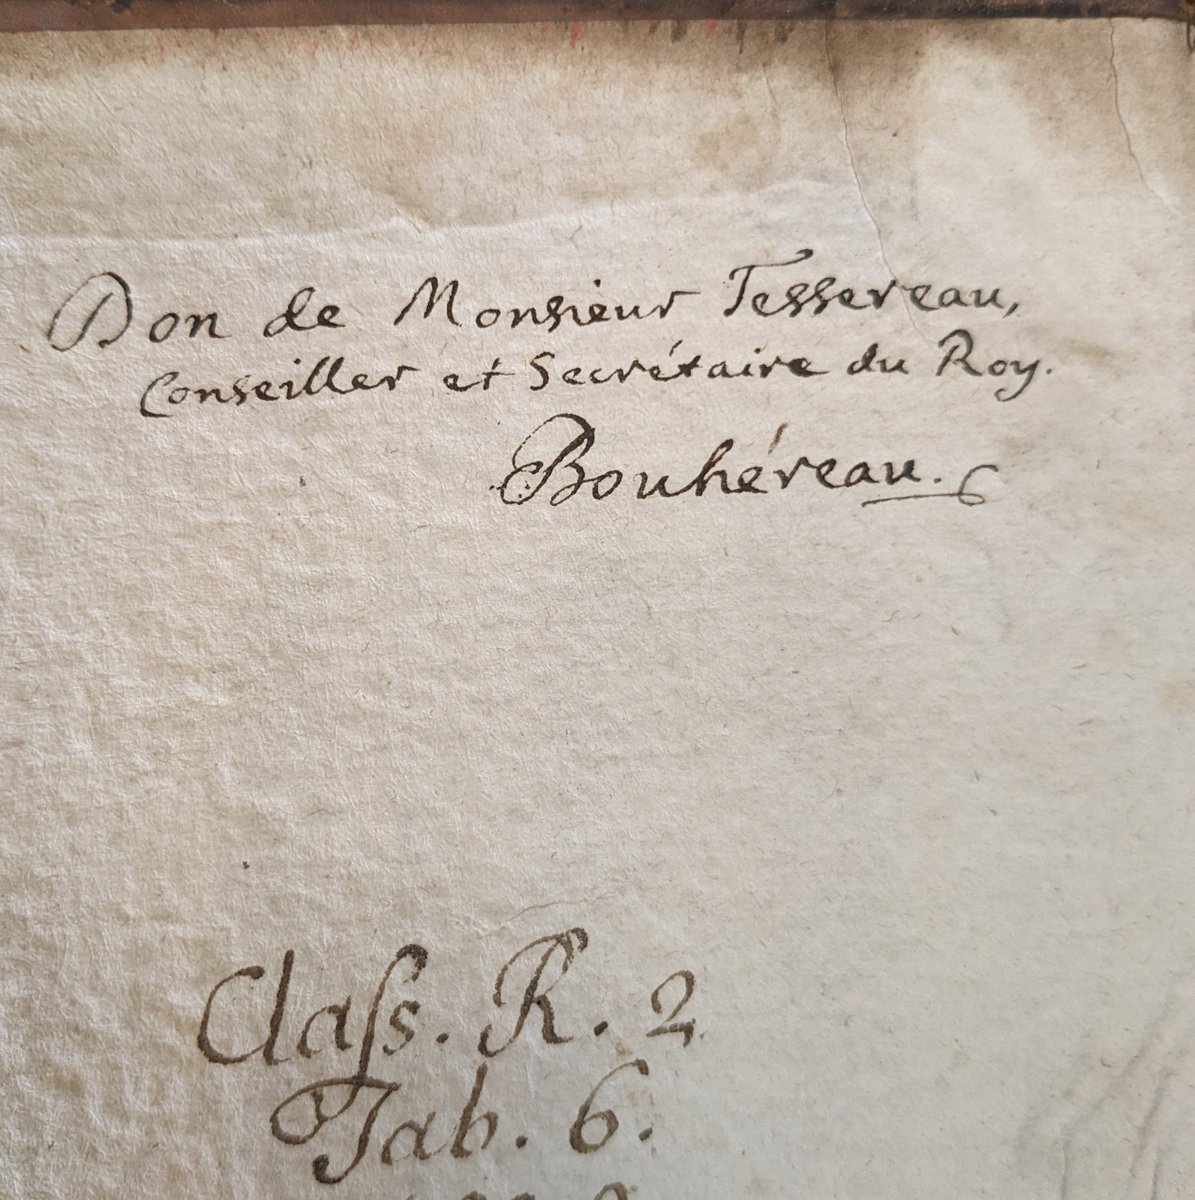 Don de Monsieur Tessereau,
Conseiller et Secrétaire du Roy.
Bouhéreau.
Claſs. R. 2
Tab. 6.